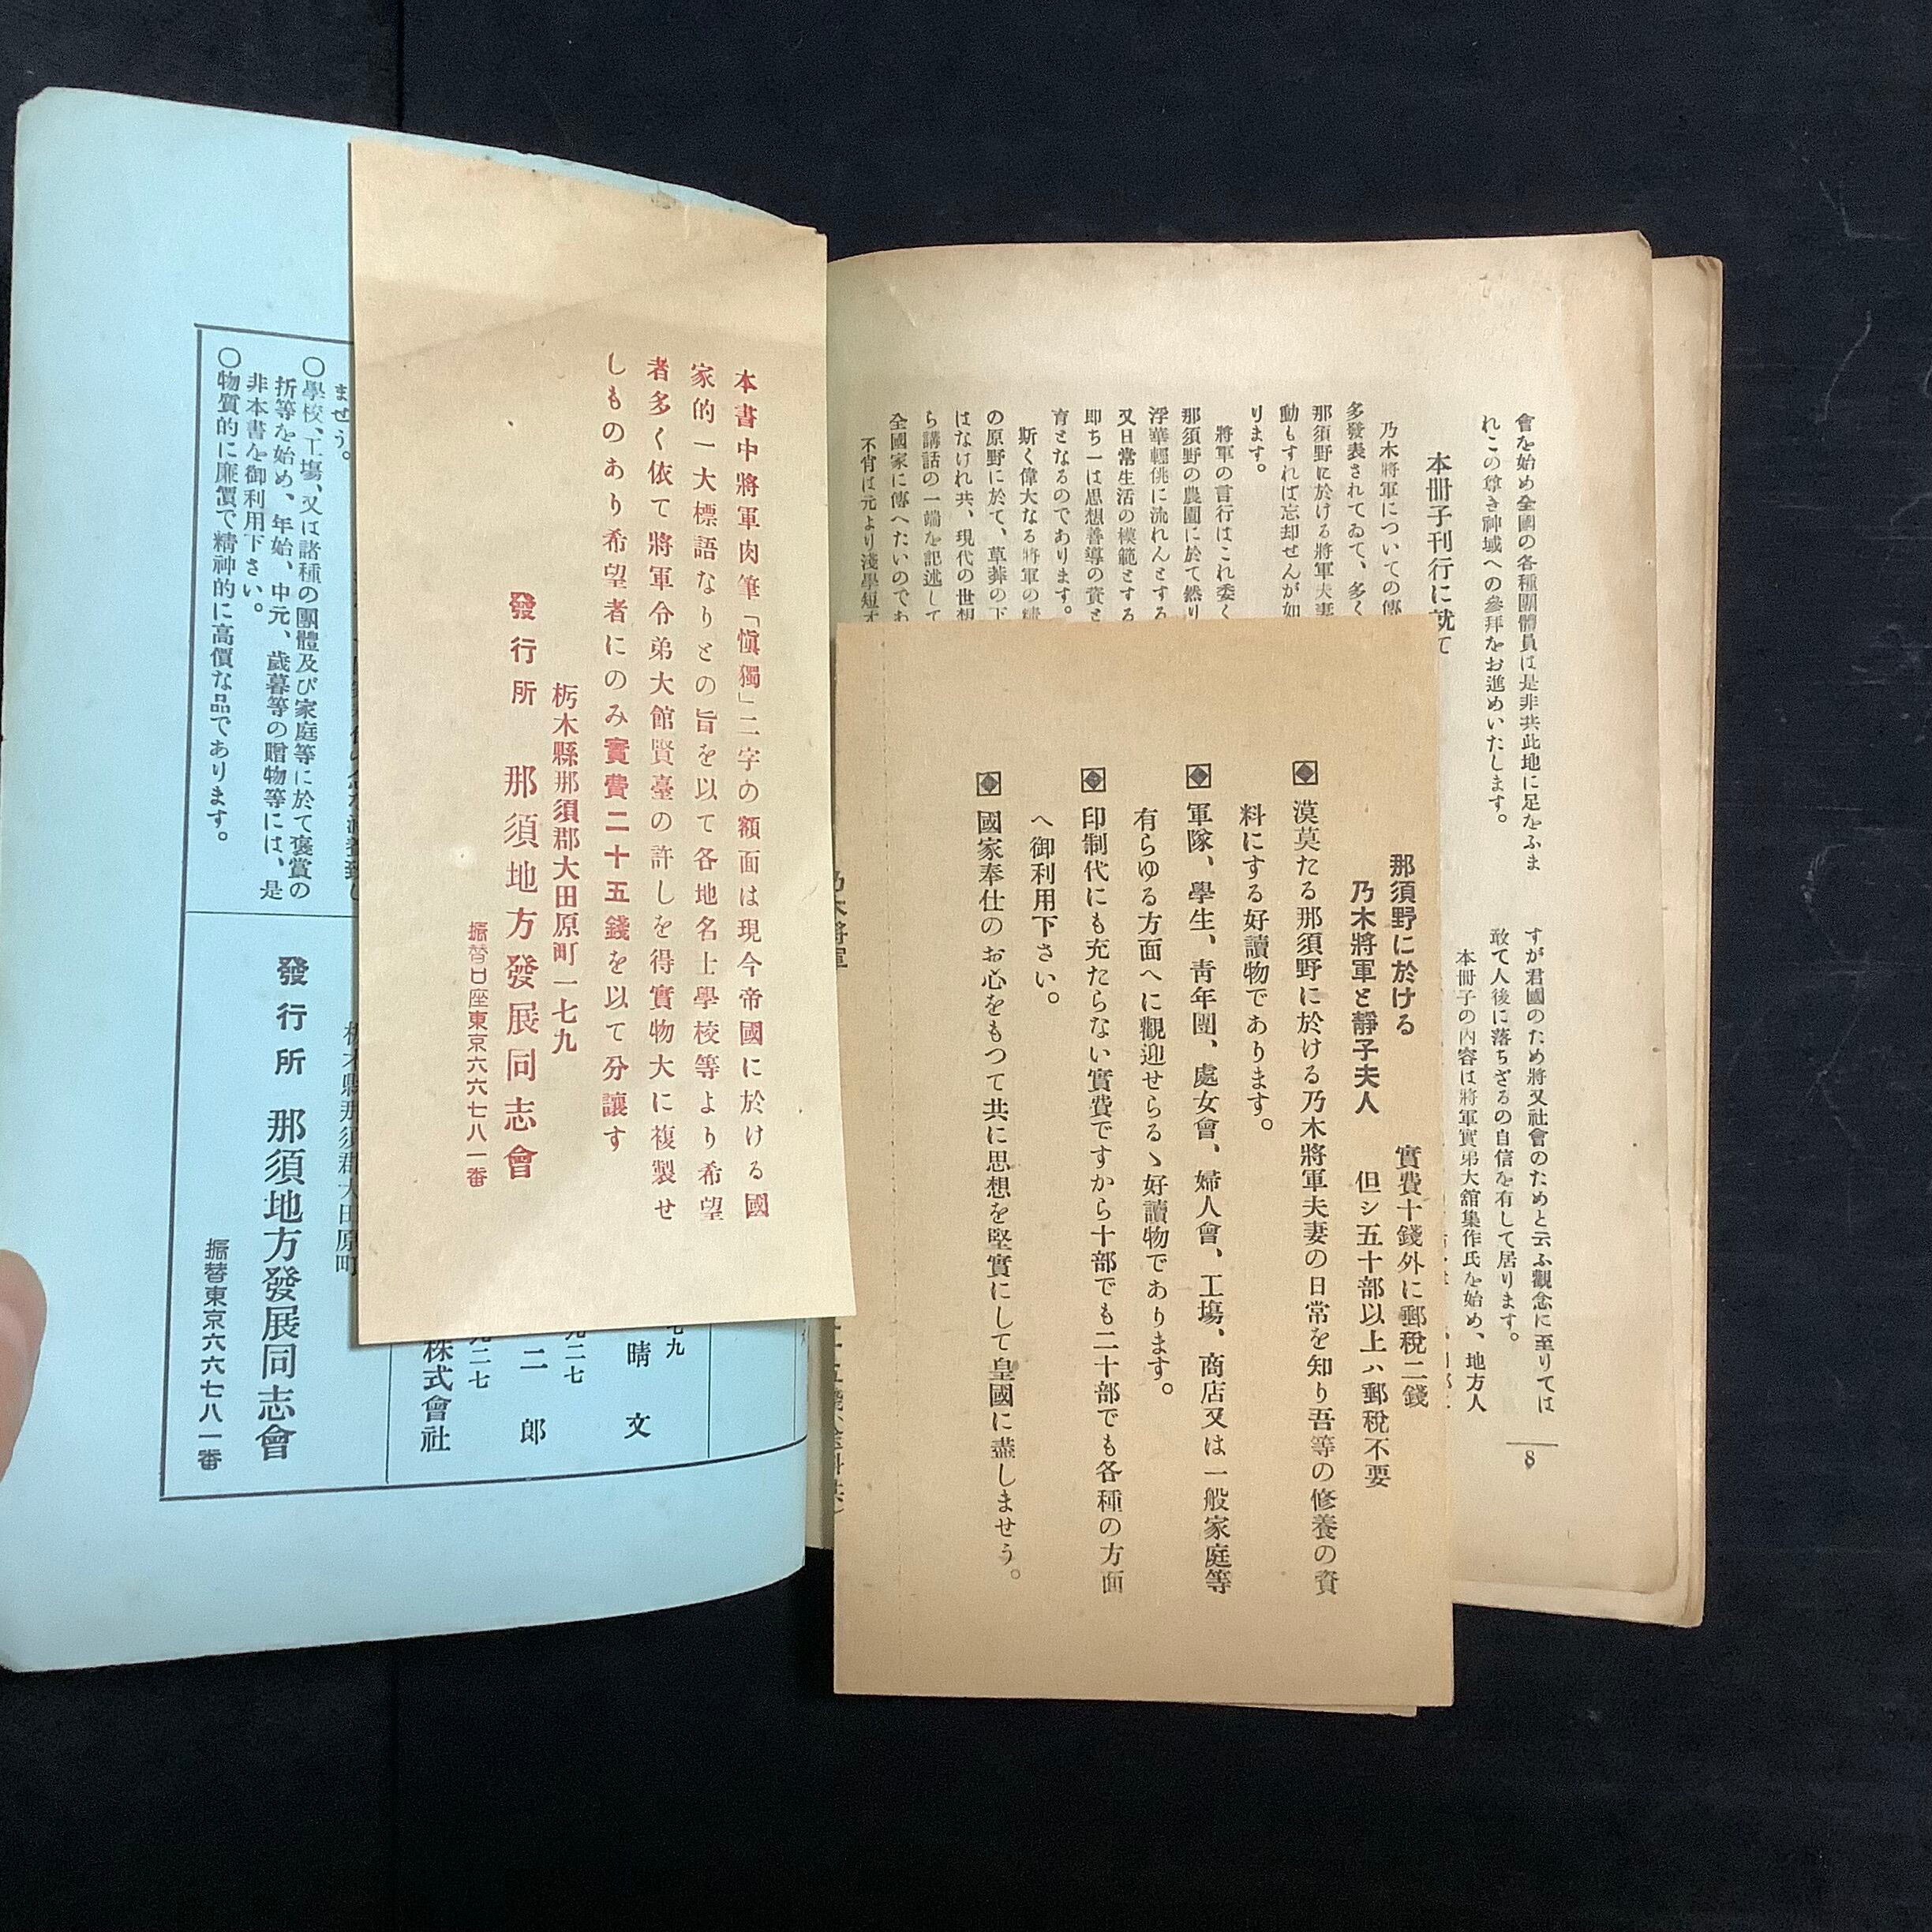 會を始め全國の各種團體員は是非共此地に足をふま
れこの尊き神域への參拜をお進めいたします。
本冊子刊行に就て
乃木將軍についての傳
多發表されてゐて、多く
那須野に於ける將軍夫妻
動もすれば忘却せんが如
ります。
將軍の言行はこれ委く
那須野の農園に於て然り
浮華輕佻に流れんとする
又日常生活の模範とする
即ち一は思想善導の資と
育となるのであります。
斯く偉大なる將軍の
の原野に於て、草葬の下
はなけれ共、現代の世想
ら講話の一端を記述して
全國家に傳へたいのであ
不肖は元より淺學短才
すが君國のため將又社會のためと云ふ觀念に至りては
敢て人後に落ちざるの自信を有して居ります。
本冊子の內容は將軍實弟大舘集作氏を始め、地方人
8
那須野に於ける
乃木將軍と靜子夫人
實費十錢外に郵稅二錢
但シ五十部以上ハ郵稅不要
漠莫たる那須野に於ける乃木將軍夫妻の日常を知り吾等の修養の資
料にする好讀物であります。
軍隊、學生、靑年團、處女會、婦人會、工場、商店又は一般家庭等
有らゆる方面へに觀迎せらるゝ好讀物であります。
印制代にも充たらない實費ですから十部でも二十部でも各種の方面
へ御利用下さい。
國家奉仕のお心をもつて共に思想を堅實にして皇國に盡しませう。
乃木將軍
本書中將軍肉筆「愼獨」二字の額面は現今帝國に於ける國
家的一大標語なりとの旨を以て各地名士學校等より希望
者多く依て將軍令弟大館賢臺の許しを得實物大に複製せ
しものあり希望者にのみ實費二十五錢を以て分讓す
栃木縣那須郡大田原町一七九
發行所 那須地方發展同志會
振替口座東京六六七八一番
ませう。
○學校、工場、又は諸種の團體及び家庭等に於て褒賞の
折等を始め、年始、中元、歲暮等の贈物等には、是
非本書を御利用下さい。
○物質的に廉價で精神的に高價な品であります。
七九
晴文
九二七
二郎
九二七
株式會社
栃木縣那須郡大田原町
發行所 那須地方發展同志會
振替東京六六七八一番